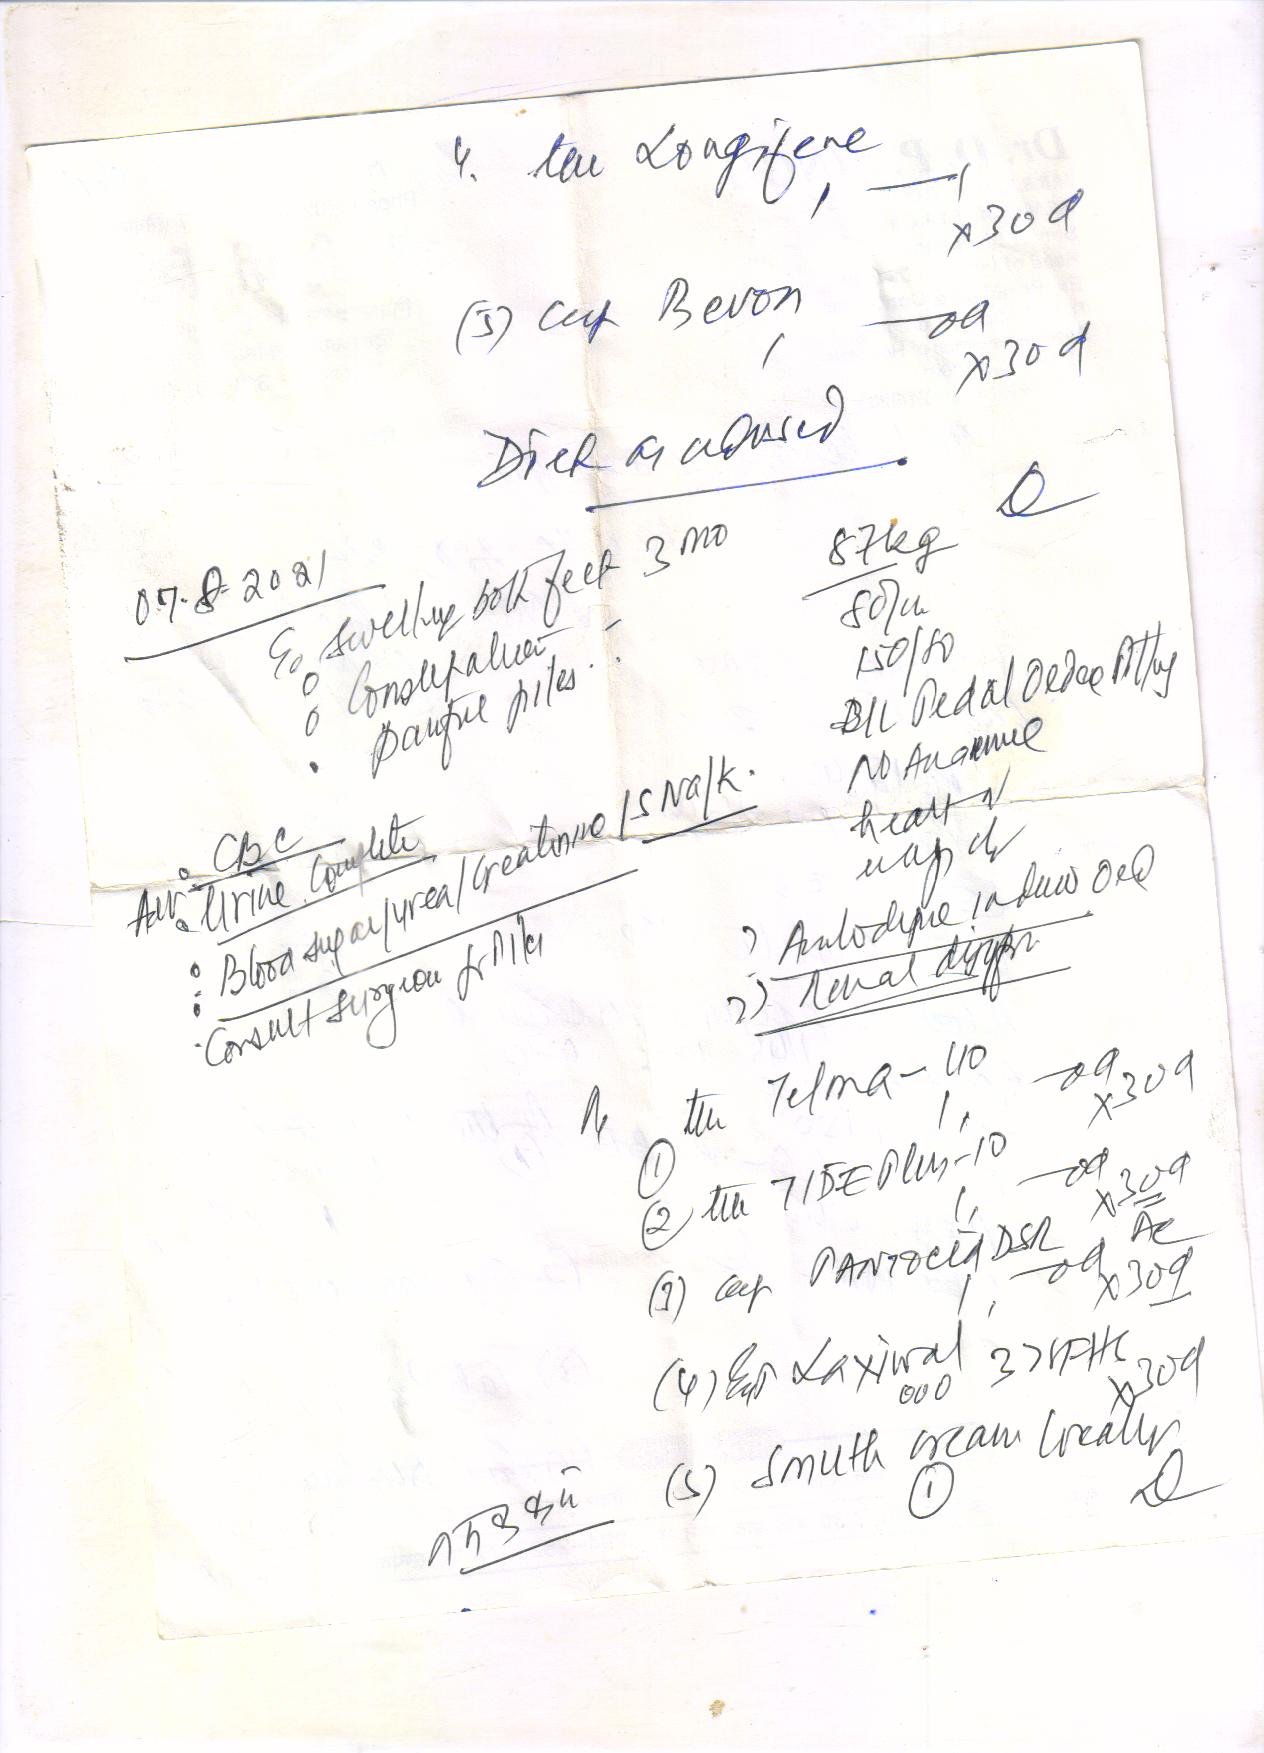 4. tab Longifene
1 — 1
x30d
(5) cap Bevon — od
1
x30d
Diet as advised
07.8.2021
c/o Swelling both feet 3 mo
Constipation
painful piles
87kg
80/m
150/80
B/L Pedal Oedee Pitting
No Anaemie
heart N
Adv. CBC
Urine Complete
Blood sugar/urea/creatinine/S Na/K.
Consult Surgeon for Piles
1) Amlodipine induced Oed
2) Renal
Rx
① tab Telma-40 — od
1, x30d
② tab TIDE Plus-10 — od
1, x30d
(3) cap PANTOCID DSR — od AC
1, x30d
(4) Laxiwal 3
x30d
(5) Smuth cream locally
①